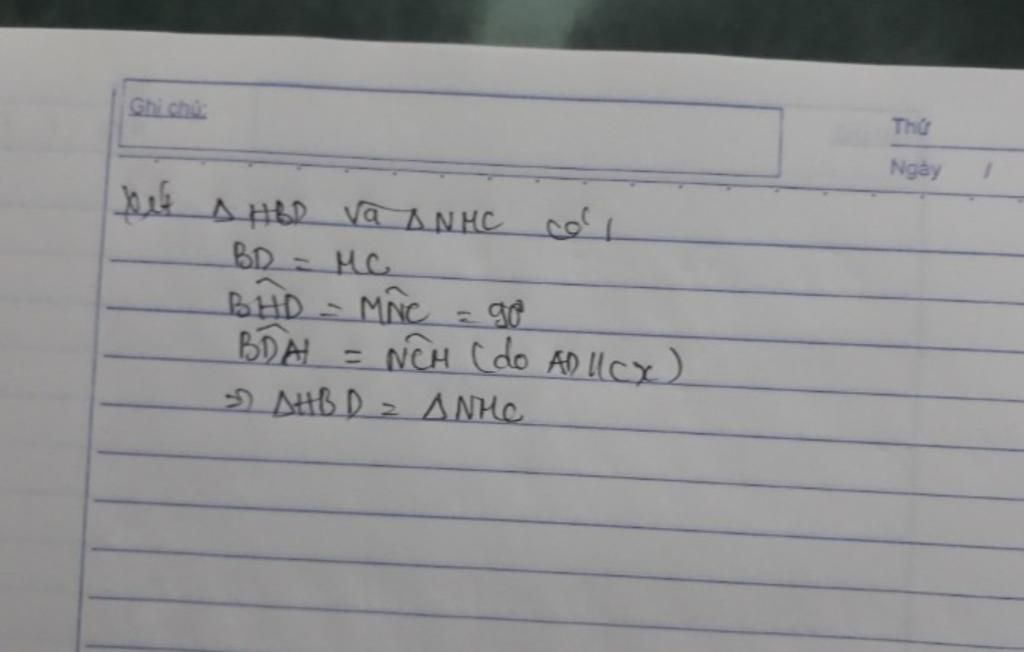 Ghi chú:
Thứ
Ngày /
Xét ΔHBD và ΔNMC có
BD = MC
BĤD = MN̂C = 90°
BD̂H = NĈM (do AD//Cx)
=> ΔHBD = ΔNMC